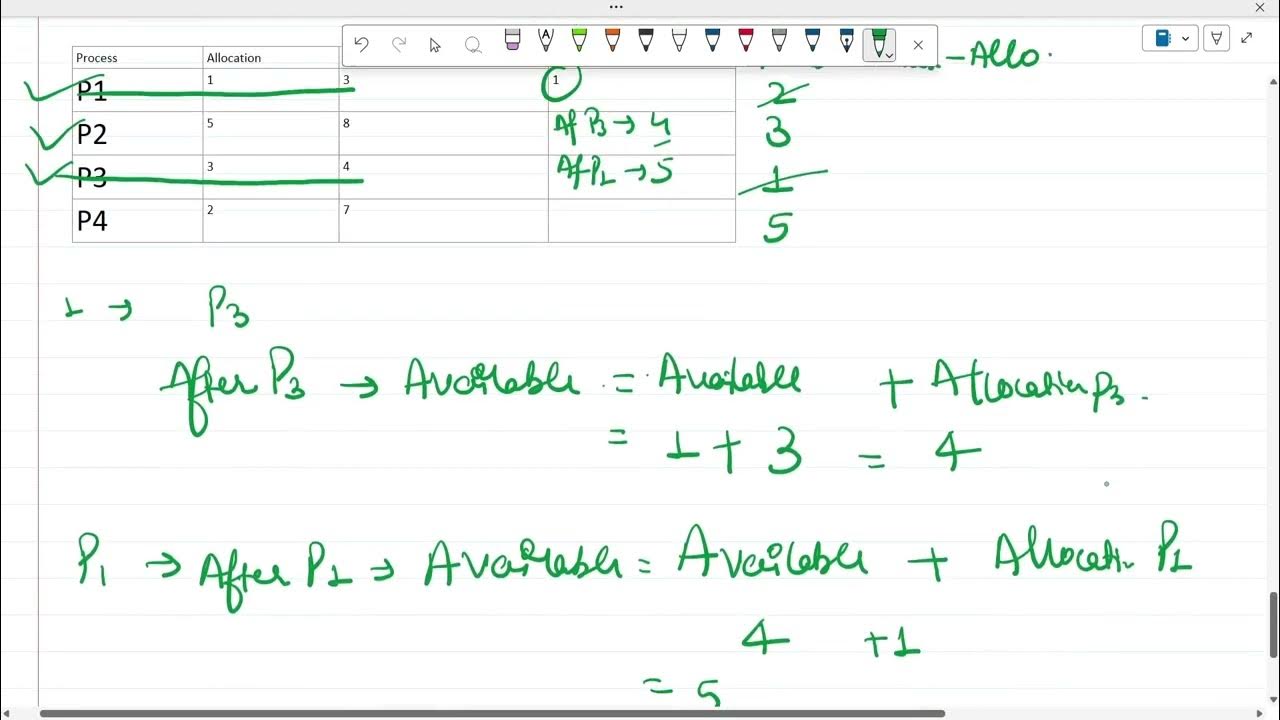 Process Allocation
-Allo.
P1 1 3 1 2
P2 5 8 Af P3 → 4 3
P3 3 4 Af P1 → 5 1
P4 2 7 5
1 → P3
After P3 → Available = Available + Allocation P3.
= 1 + 3 = 4
P1 → After P1 → Available = Available + Allocati. P1
4 + 1
= 5